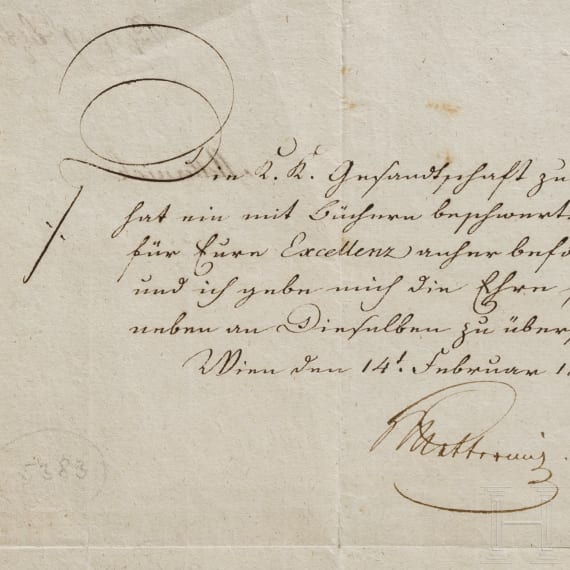 Die K. K. Gesandtschaft zu
hat ein mit Büchern beschwert
für Eure Excellenz anher befo
und ich gebe mir die Ehre
neben an Dieselben zu über
Wien den 14t. Februar 1
Metternich
5383